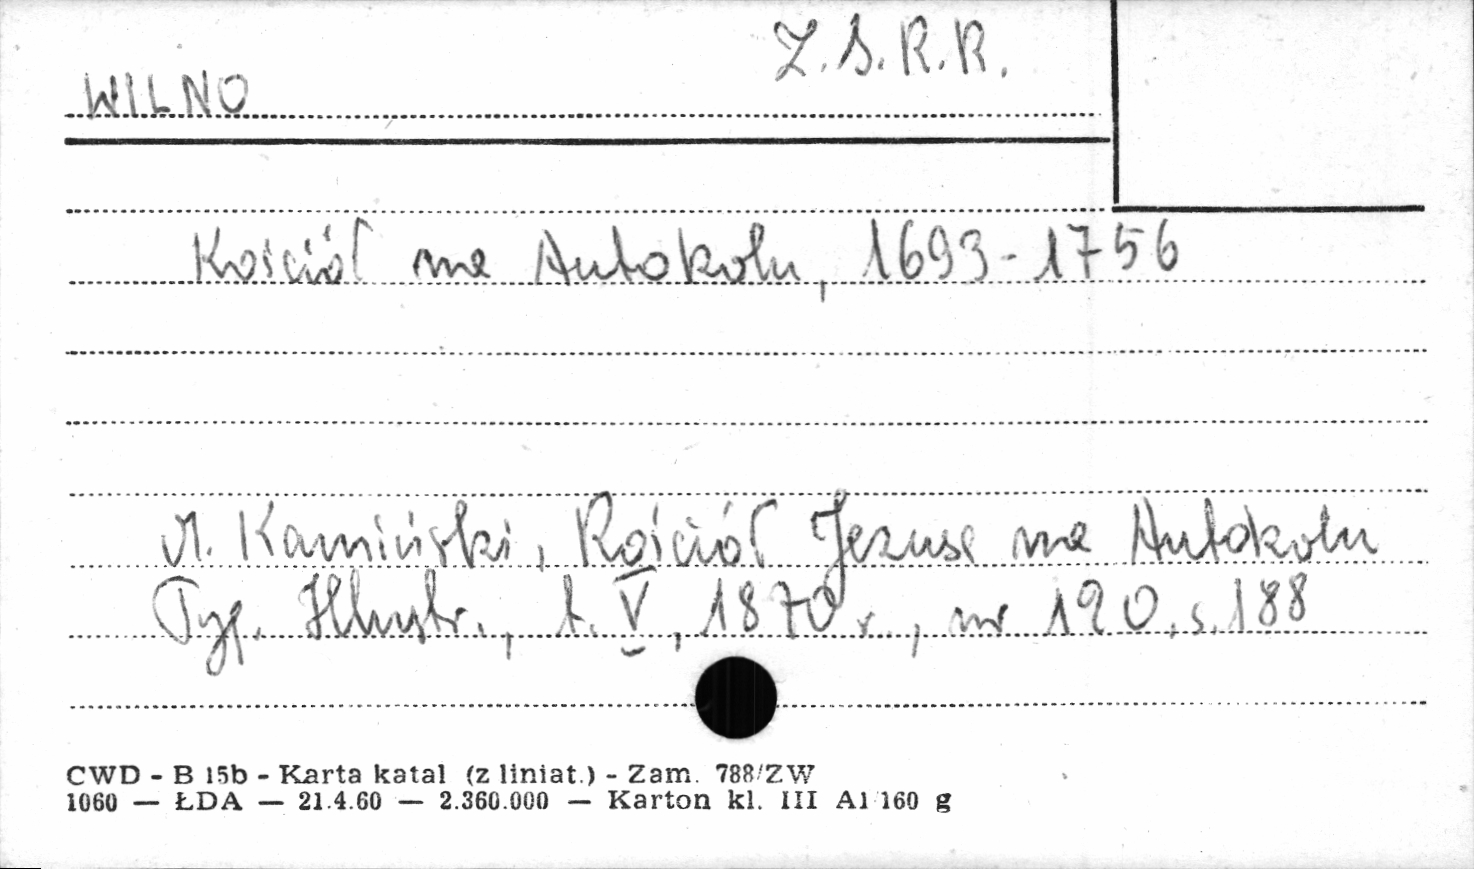 Z.S.R.R.
WILNO
Kościół na Antokolu, 1693-1756
M. Kamiński, Kościół Jezusa na Antokolu
Tyg. Illustr., t. V, 1870 r., nr 120, s. 188
CWD - B 15b - Karta katal (z liniat.) - Zam. 788/ZW
1060 — ŁDA — 21.4.60 — 2.360.000 — Karton kl. III A1 160 g